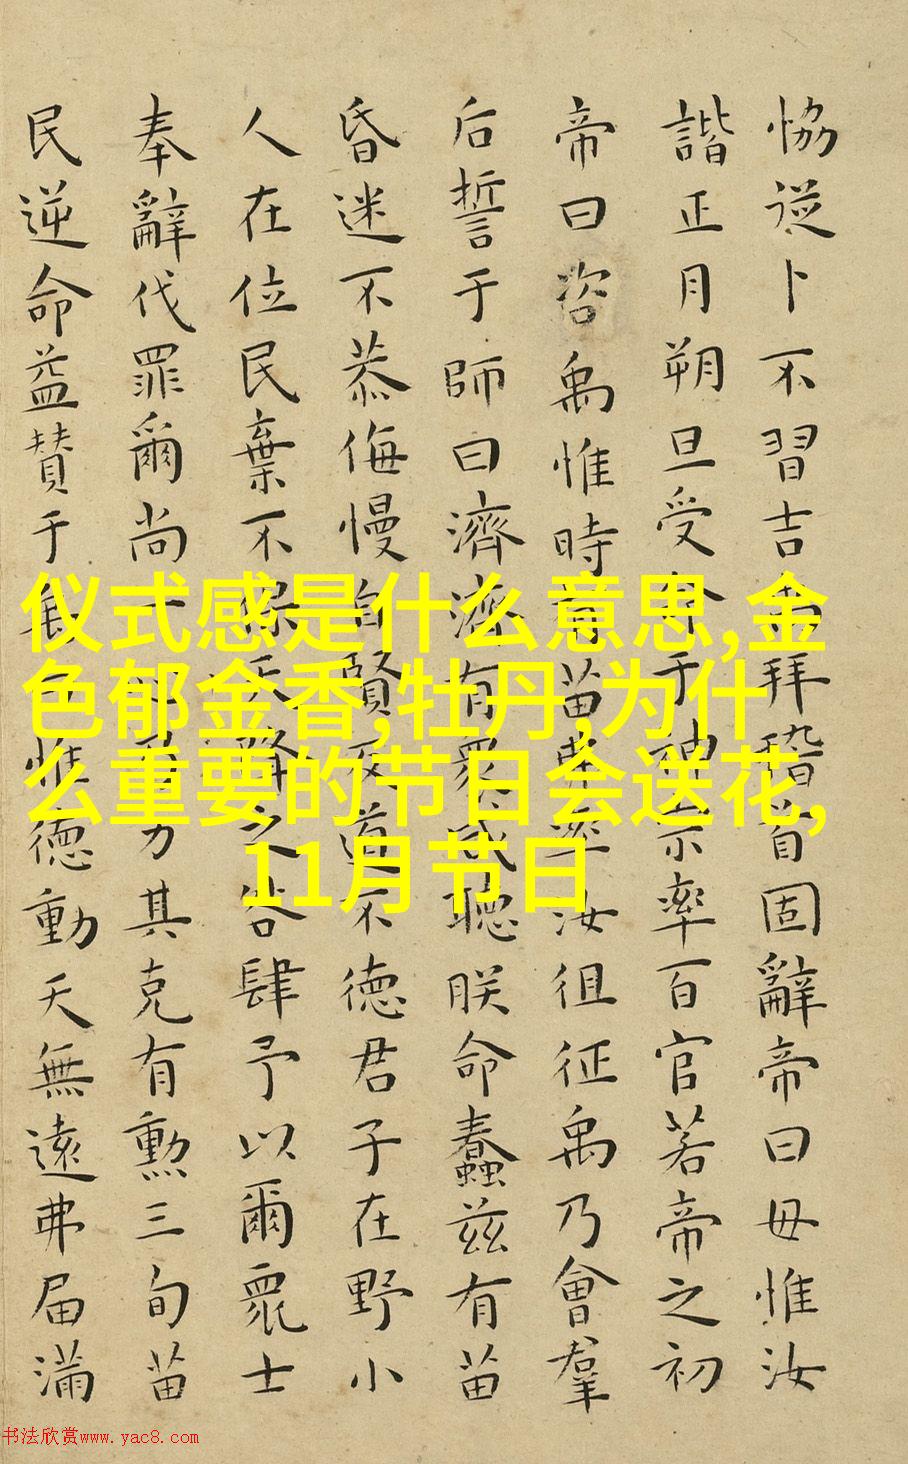 恊從卜不習吉禹拜稽首固辭帝曰毋惟汝
諧正月朔旦受命于神宗率百官若帝之初
帝曰咨禹惟時有苗弗率汝徂征禹乃會羣
后誓于師曰濟濟有眾咸聽朕命蠢茲有苗
昏迷不恭侮慢自賢反道不徳君子在野小
人在位民棄不保天降之咎肆予以爾眾士
奉辭伐罪爾尚一乃心力其克有勲三旬苗
民逆命益賛于禹曰惟徳動天無遠弗届滿
仪式感是什么意思,金
色郁金香,牡丹,为什
么重要的节日会送花,
11月节日
书法欣赏www.yac8.com